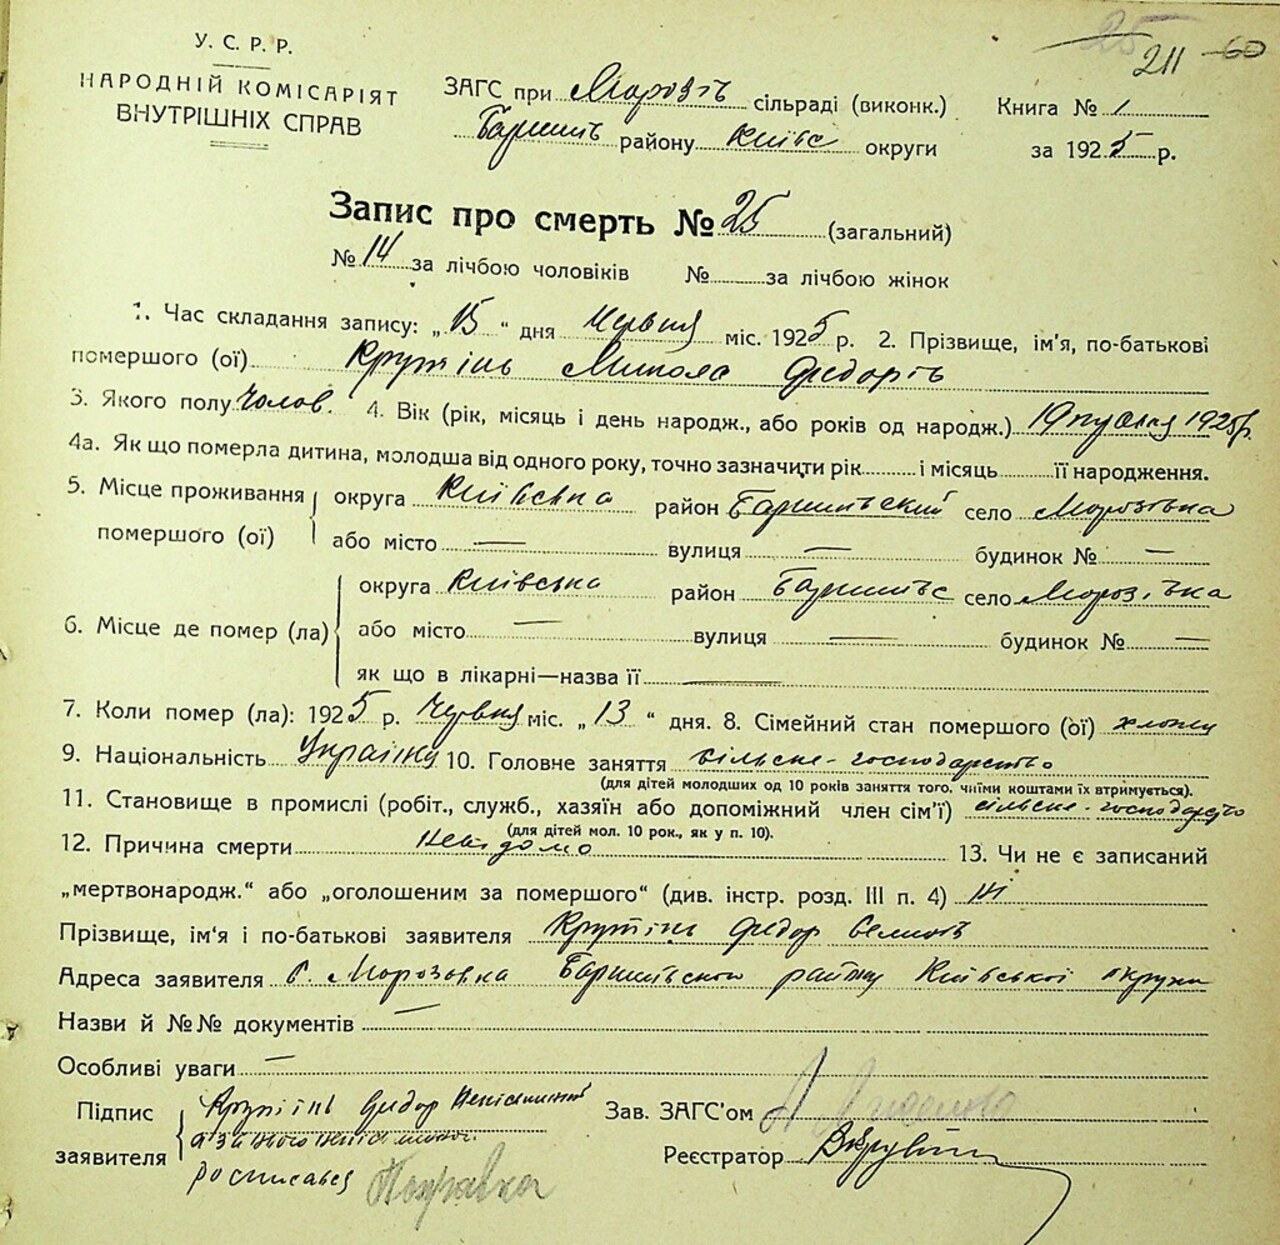 25
211 60
У. С. Р. Р.
НАРОДНІЙ КОМІСАРІЯТ
ВНУТРІШНІХ СПРАВ
ЗАГС при Морозів сільраді (виконк.)
Баришів району Київс округи
Книга № 1
за 1925 р.
Запис про смерть № 25 (загальний)
№ 14 за лічбою чоловіків № за лічбою жінок
1. Час складання запису: „15“ дня Червня міс. 1925 р. 2. Прізвище, ім'я, по-батькові
помершого (ої) Крутінь Микола Федорів
3. Якого полу Чолов. 4. Вік (рік, місяць і день народж., або років од народж.) 19 1925 р.
4а. Як що померла дитина, молодша від одного року, точно зазначити рік і місяць її народження.
5. Місце проживання помершого (ої) округа Київська район Баришівський село Морозівка
або місто — вулиця — будинок № —
6. Місце де помер (ла) округа Київська район Баришівс село Морозівка
або місто — вулиця — будинок № —
як що в лікарні—назва її —
7. Коли помер (ла): 1925 р. Червня міс. „13“ дня. 8. Сімейний стан помершого (ої)
9. Національність 10. Головне заняття сільске-господарство
(для дітей молодших од 10 років заняття того, чиїми коштами їх втримується).
11. Становище в промислі (робіт., служб., хазяїн або допоміжний член сім'ї) сільске-господарство
(для дітей мол. 10 рок., як у п. 10).
12. Причина смерти Невідомо 13. Чи не є записаний
„мертвонародж.“ або „оголошеним за помершого“ (див. інстр. розд. III п. 4) ні
Прізвище, ім'я і по-батькові заявителя Крутінь Федор
Адреса заявителя с. Морозовка району Київської округи
Назви й №№ документів —
Особливі уваги —
Підпис заявителя Крутінь Федор неписьменний
а за нього
росписався
Зав. ЗАГС'ом
Реєстратор